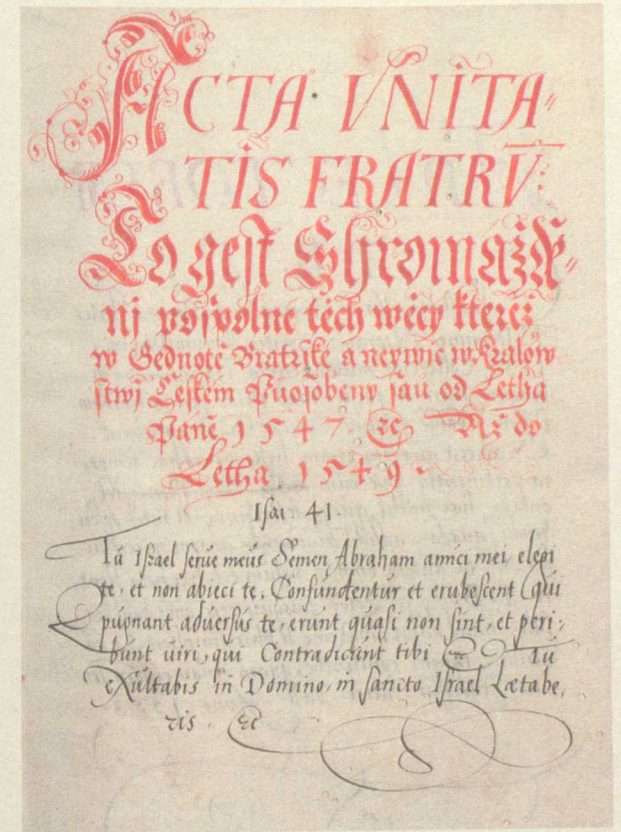 ACTA · VNITA=
TIS FRATRV̄:
To gest Shromaždě=
nj pospolné těch wěcý kteréž
w Gednotě Bratrské a neywíc w Kralow
stwj Českém Půosobeny sau od Letha
Páně 1547 &c Až do
Letha 1549
Isai 41.
Tu Israel serue meus Semen Abraham amici mei, elegi
te, et non abieci te, Confundentur et erubescent qui
pugnant aduersus te, erunt quasi non sint, et peri=
bunt uiri, qui Contradicunt tibi &c Tu
eXultabis in Domino, in sancto Israel Lætabe,
ris &c